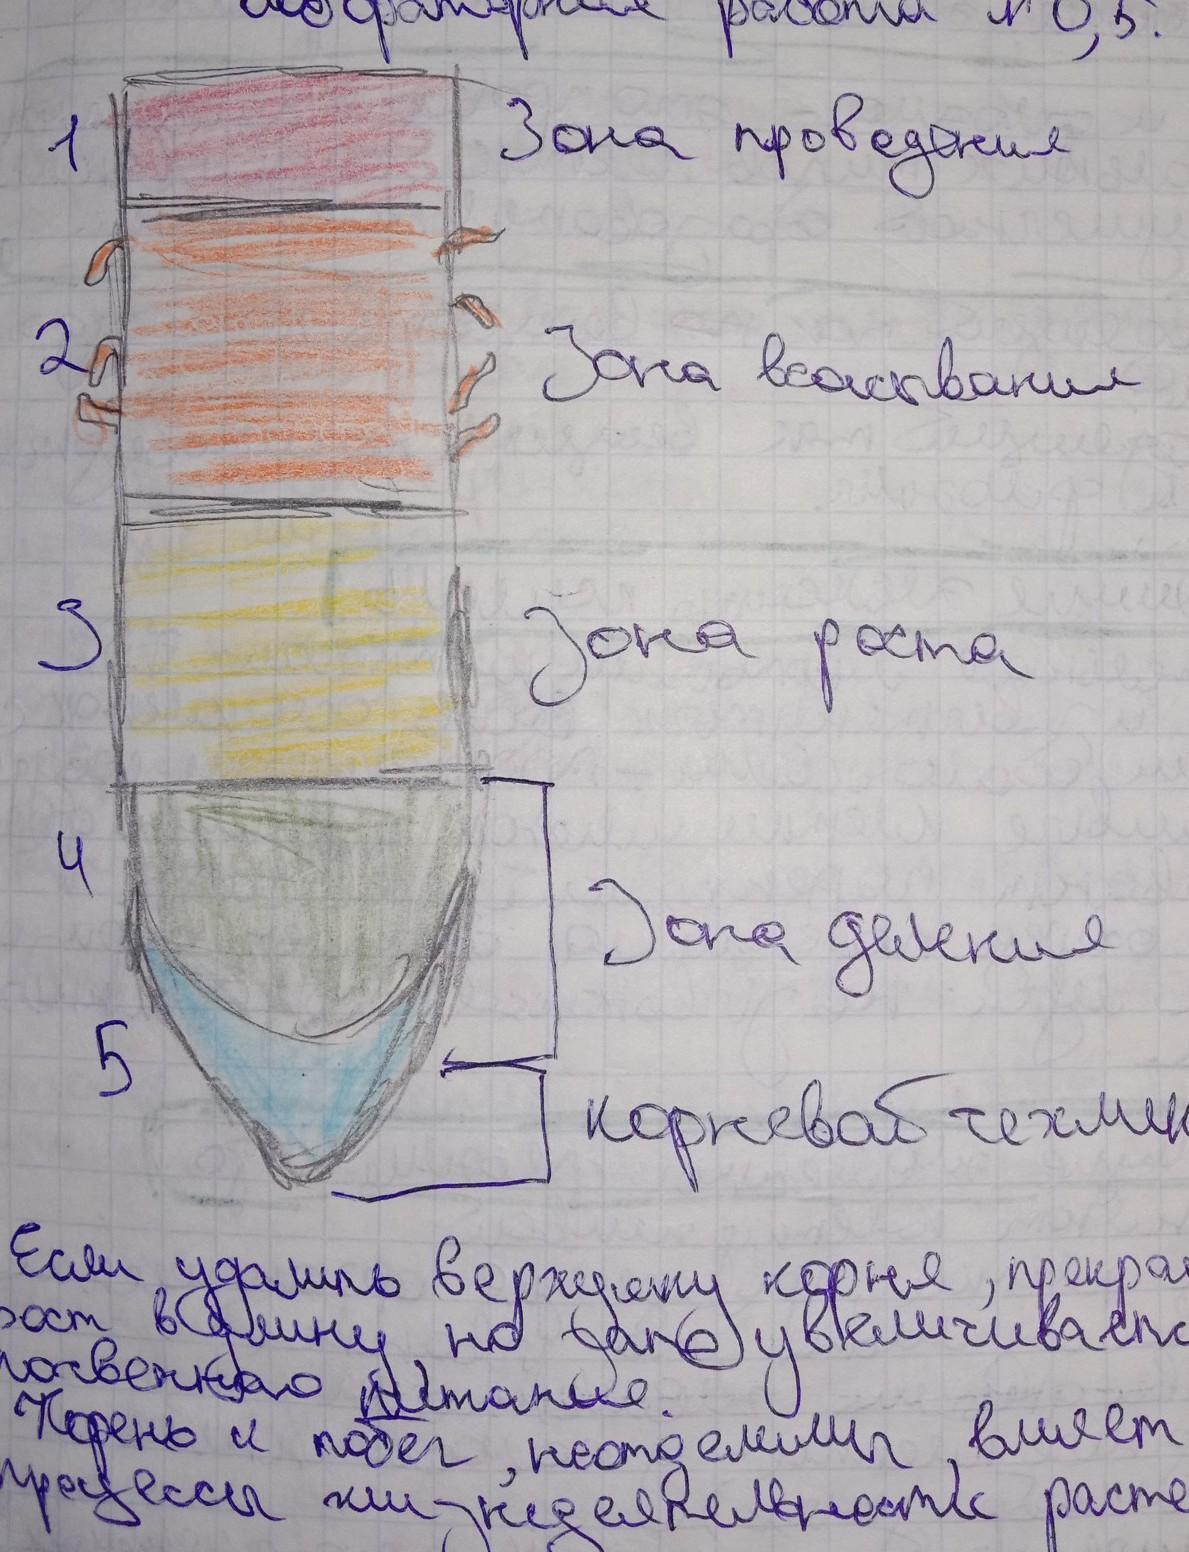 работа № 0,5.
1 Зона проведения
2 Зона всасывания
3 Зона роста
4 Зона деления
5 корневой чехлик
Если удалить верхушку корня, прекра
рост в длину но зато увеличивается
почвенного питание.
Корень и побег, неотделимы, влияет
процессы жизнедеятельности расте